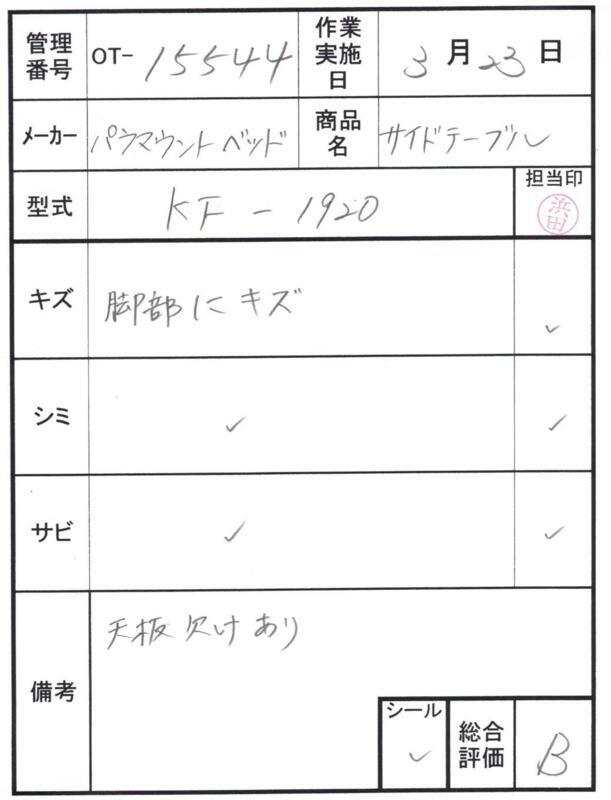 管理番号 OT- 15544 作業実施日 3月23日
メーカー パラマウントベッド 商品名 サイドテーブル
型式 KF-1920 担当印 浜田
キズ 脚部にキズ ✓
シミ ✓ ✓
サビ ✓ ✓
備考 天板欠けあり
シール ✓ 総合評価 B